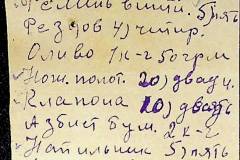 5) пять
Резцов 4) четыр.
Оливо 1 к-г 50 грм
Нож. полот. 20) двадц.
Клапона 20) двать
Азбист Бум. 2 к-г
Напильник 5) пять